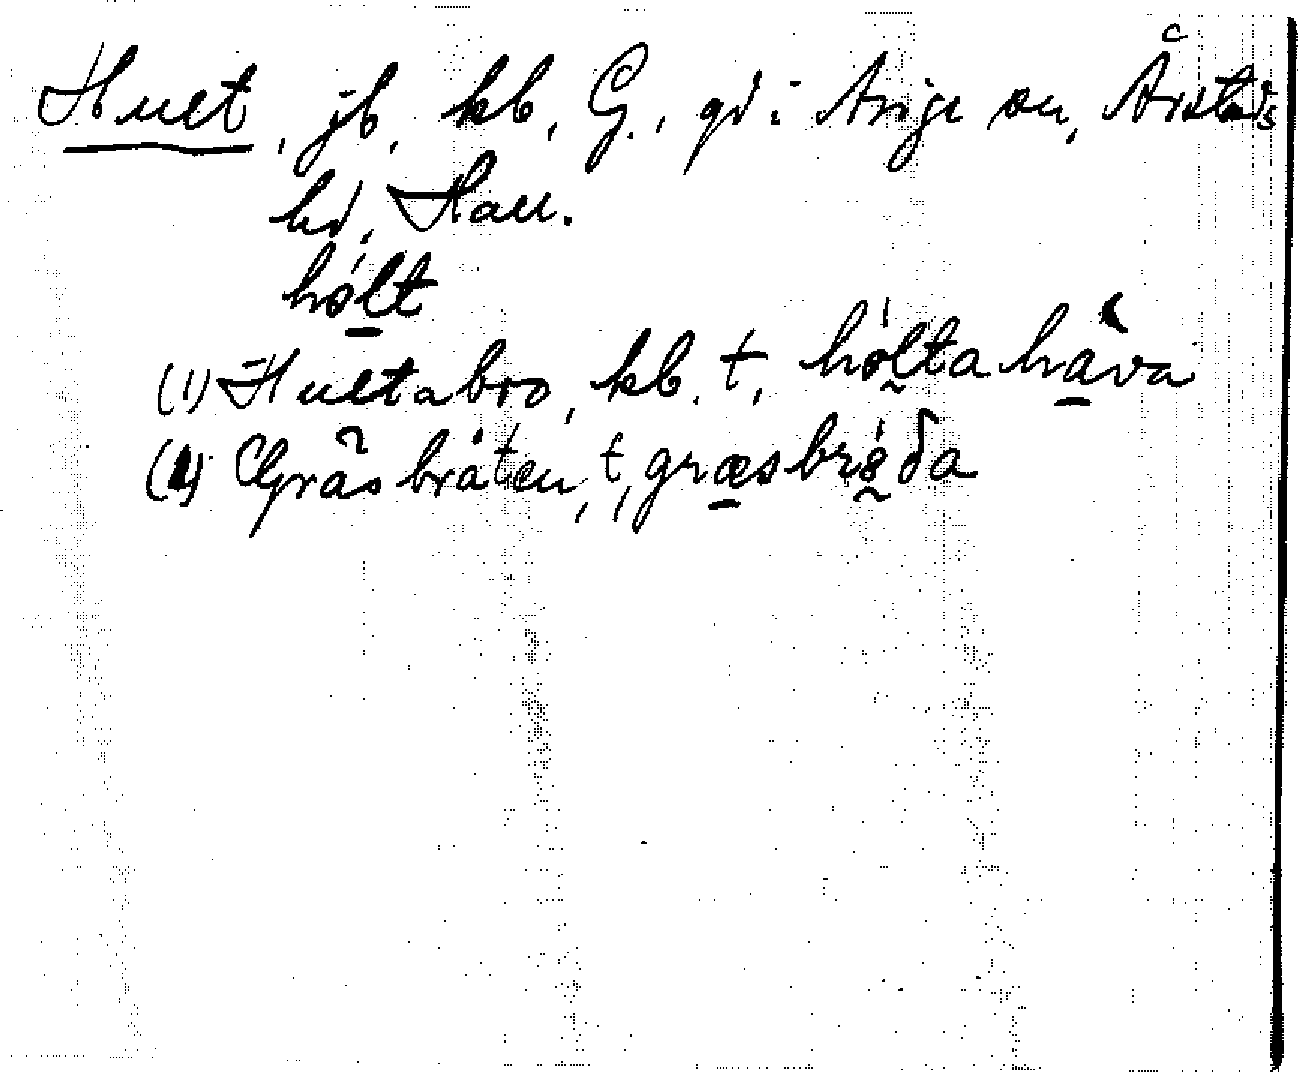 Hult, jb, kb, G., gd i Årige sn, Årstads
hd, Hall.
hólt
(1) Hultabro, kb. t, hóltahåva
(2) Gräsbråten, t, græsbróda